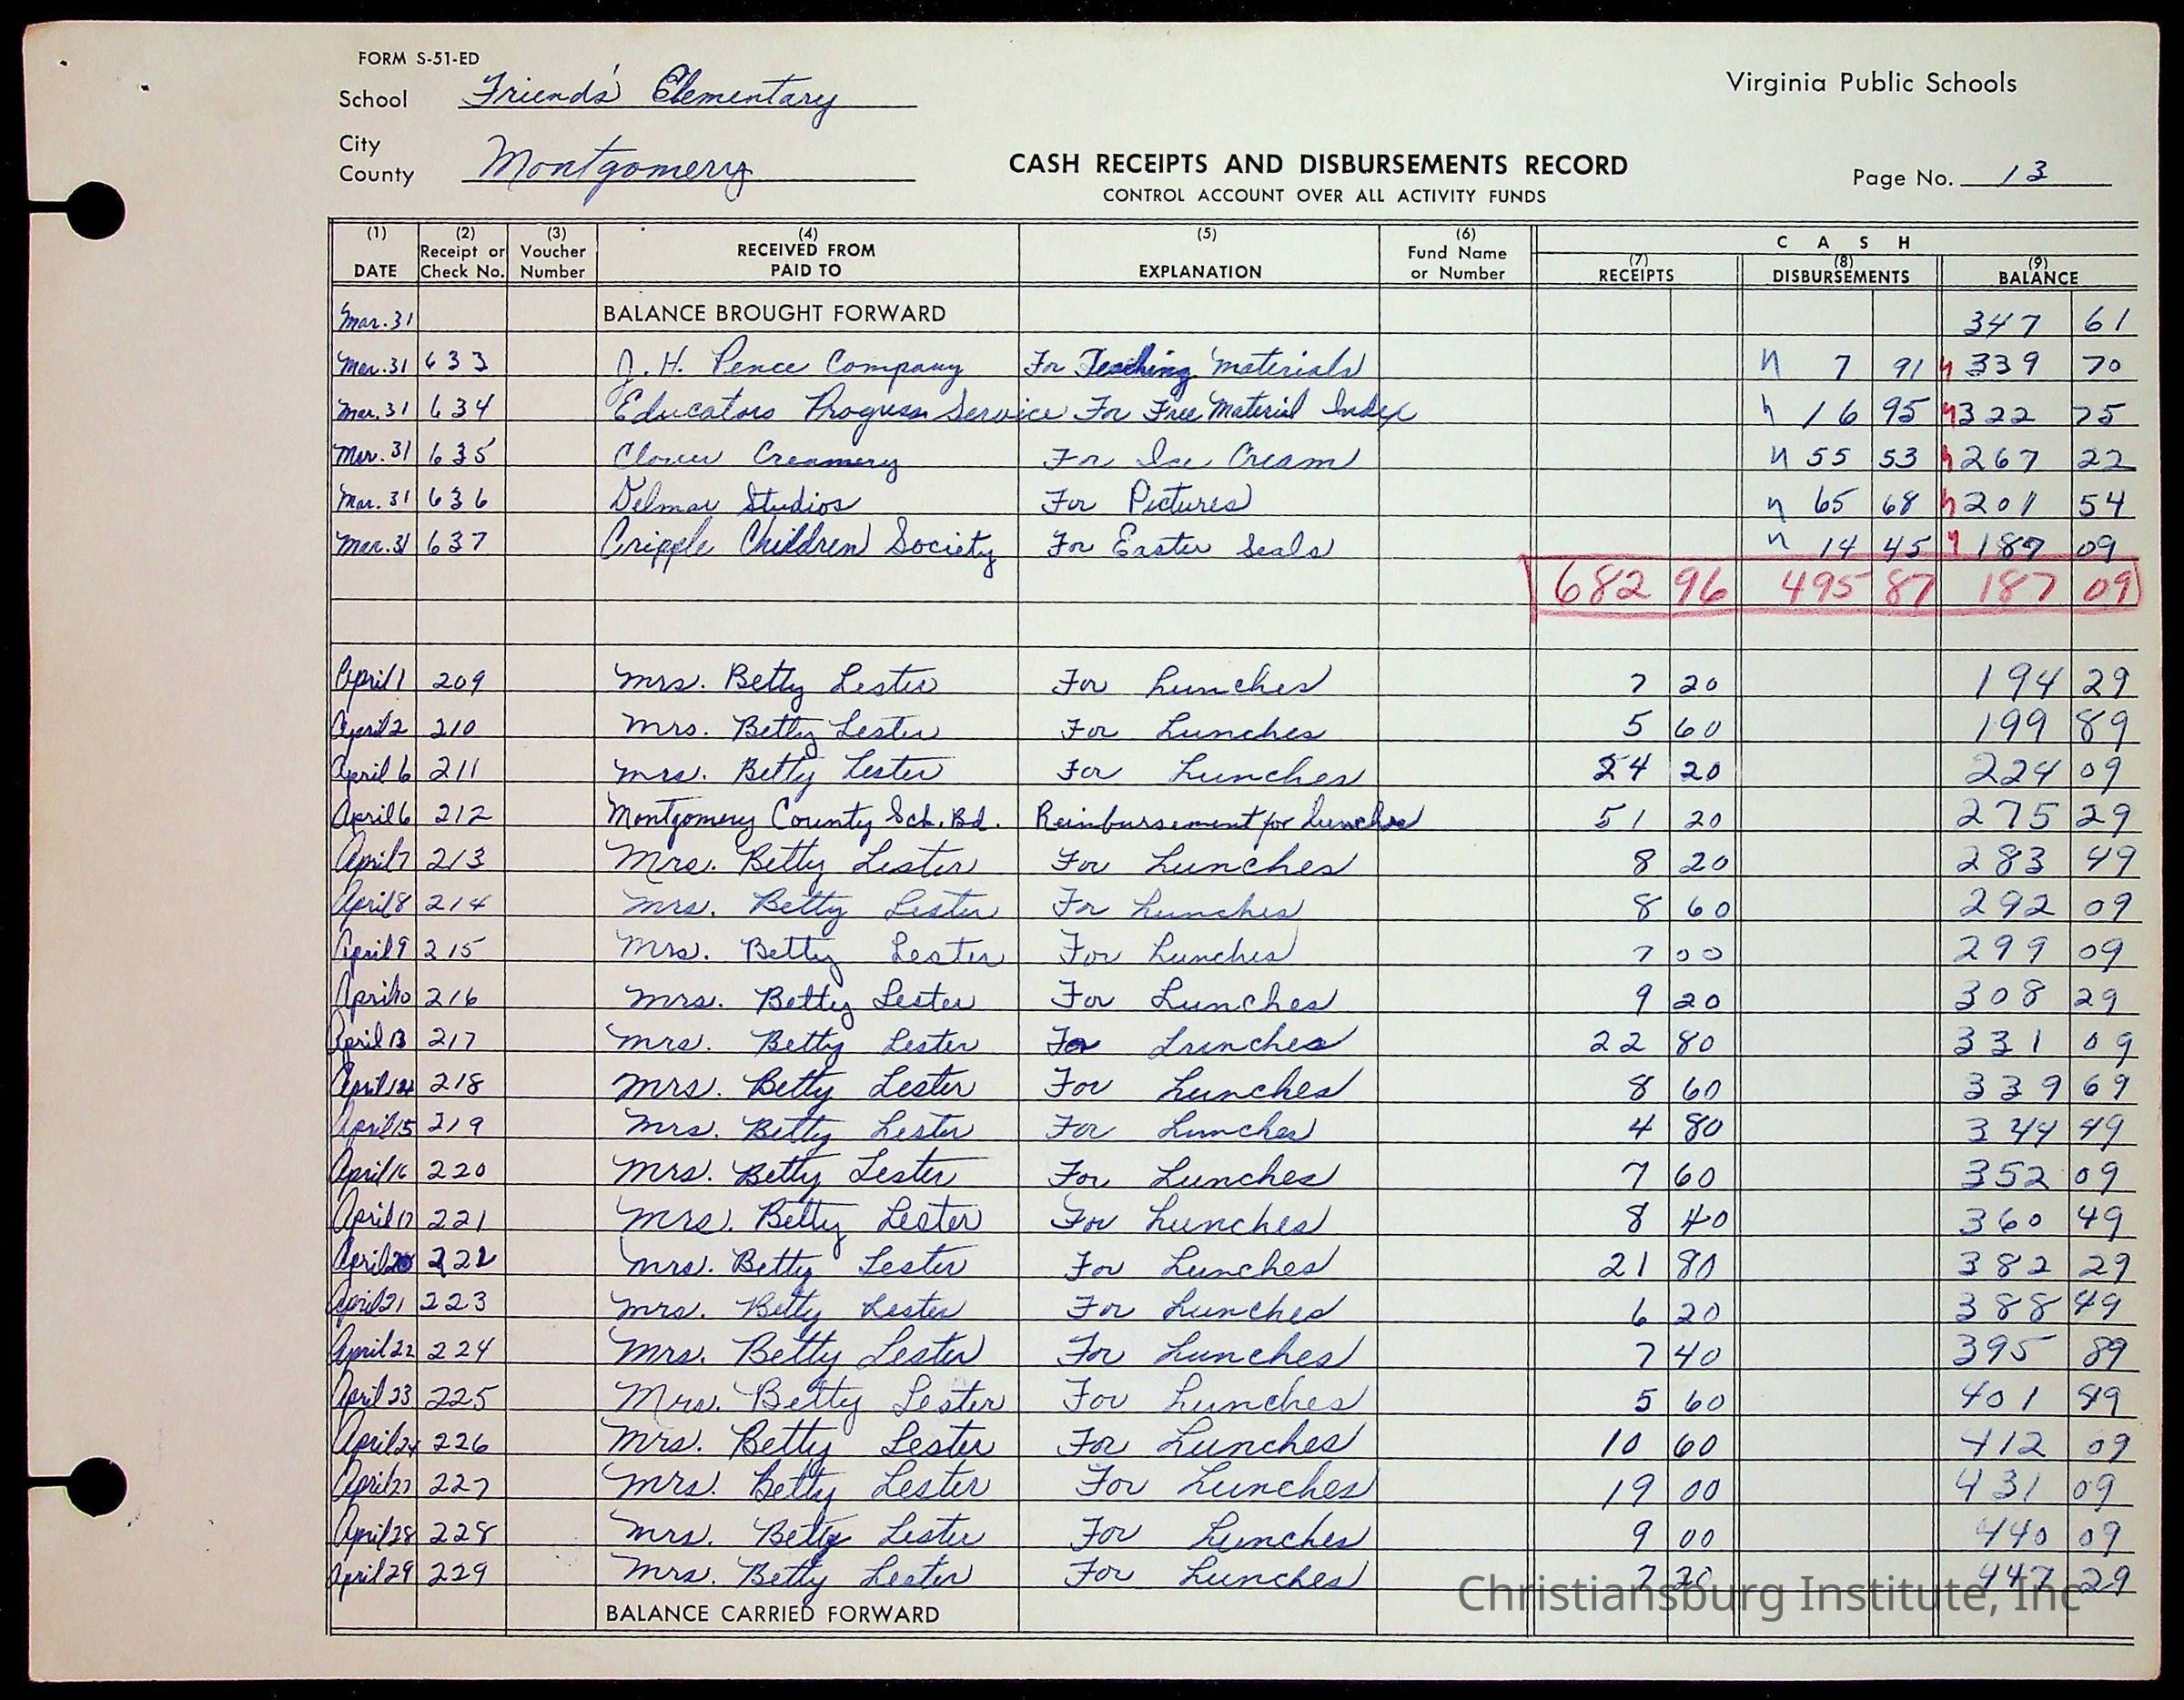 FORM S-51-ED
School Friends' Elementary
Virginia Public Schools
City
County Montgomery
CASH RECEIPTS AND DISBURSEMENTS RECORD
CONTROL ACCOUNT OVER ALL ACTIVITY FUNDS
Page No. 13
(1) DATE (2) Receipt or Check No. (3) Voucher Number (4) RECEIVED FROM PAID TO (5) EXPLANATION (6) Fund Name or Number CASH (7) RECEIPTS (8) DISBURSEMENTS (9) BALANCE
Mar. 31 BALANCE BROUGHT FORWARD 347 61
Mar. 31 633 J. H. Pence Company For Teaching Materials 7 91 339 70
Mar. 31 634 Educators Progress Service For Free Material Index 16 95 322 75
Mar. 31 635 Clover Creamery For Ice Cream 55 53 267 22
Mar. 31 636 Delmar Studios For Pictures 65 68 201 54
Mar. 31 637 Cripple Children Society For Easter Seals 14 45 187 09
682 96 495 87 187 09
April 1 209 Mrs. Betty Lester For Lunches 7 20 194 29
April 2 210 Mrs. Betty Lester For Lunches 5 60 199 89
April 6 211 Mrs. Betty Lester For Lunches 24 20 224 09
April 6 212 Montgomery County Sch. Bd. Reinbursement for lunches 51 20 275 29
April 7 213 Mrs. Betty Lester For Lunches 8 20 283 49
April 8 214 Mrs. Betty Lester For Lunches 8 60 292 09
April 9 215 Mrs. Betty Lester For Lunches 7 00 299 09
April 10 216 Mrs. Betty Lester For Lunches 9 20 308 29
April 13 217 Mrs. Betty Lester For Lunches 22 80 331 09
April 14 218 Mrs. Betty Lester For Lunches 8 60 339 69
April 15 219 Mrs. Betty Lester For Lunches 4 80 344 49
April 16 220 Mrs. Betty Lester For Lunches 7 60 352 09
April 17 221 Mrs. Betty Lester For Lunches 8 40 360 49
April 20 222 Mrs. Betty Lester For Lunches 21 80 382 29
April 21 223 Mrs. Betty Lester For Lunches 6 20 388 49
April 22 224 Mrs. Betty Lester For Lunches 7 40 395 89
April 23 225 Mrs. Betty Lester For Lunches 5 60 401 49
April 24 226 Mrs. Betty Lester For Lunches 10 60 412 09
April 27 227 Mrs. Betty Lester For Lunches 19 00 431 09
April 28 228 Mrs. Betty Lester For Lunches 9 00 440 09
April 29 229 Mrs. Betty Lester For Lunches 7 20 447 29
Christiansburg Institute, Inc
BALANCE CARRIED FORWARD